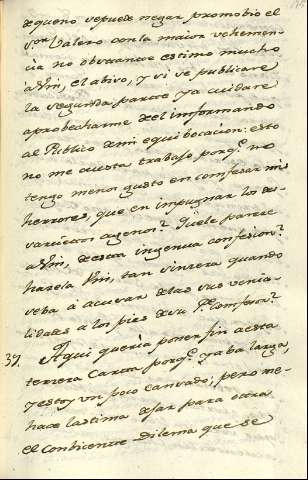 de que no se puede negar promobio el
Sor. Valero con la maior vehemen-
cia no obstante estimo mucho
à Vm, el abiso, y si se publicare
la segunda parte ya cuidare
aprobecharme del informando
al Publico de mi equibocacion: esto
no me cuesta trabajo porqe. no
tengo menor gusto en confesar mis
herrores, que en impugnar los des-
varietos agenos? Què le parece
à Vm, de esta ingenua confesion?
harala Vm, tan sincera quando
veba à acusar de las sus venia-
lidades a los pies de su Pe. Comfesor?
37. Aqui queria poner fin a esta
tercera Carta porqe. ya ba larga,
y estoy un poco cansado; pero me-
hace lastima dejar para otra
el Combicente Dilema que se